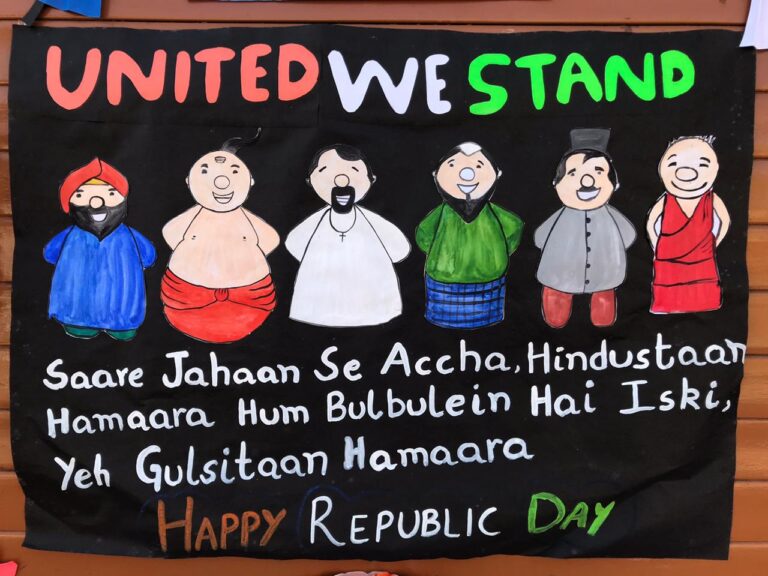 UNITED WE STAND
Saare Jahaan Se Accha, Hindustaan
Hamaara Hum Bulbulein Hai Iski,
Yeh Gulsitaan Hamaara
HAPPY REPUBLIC DAY